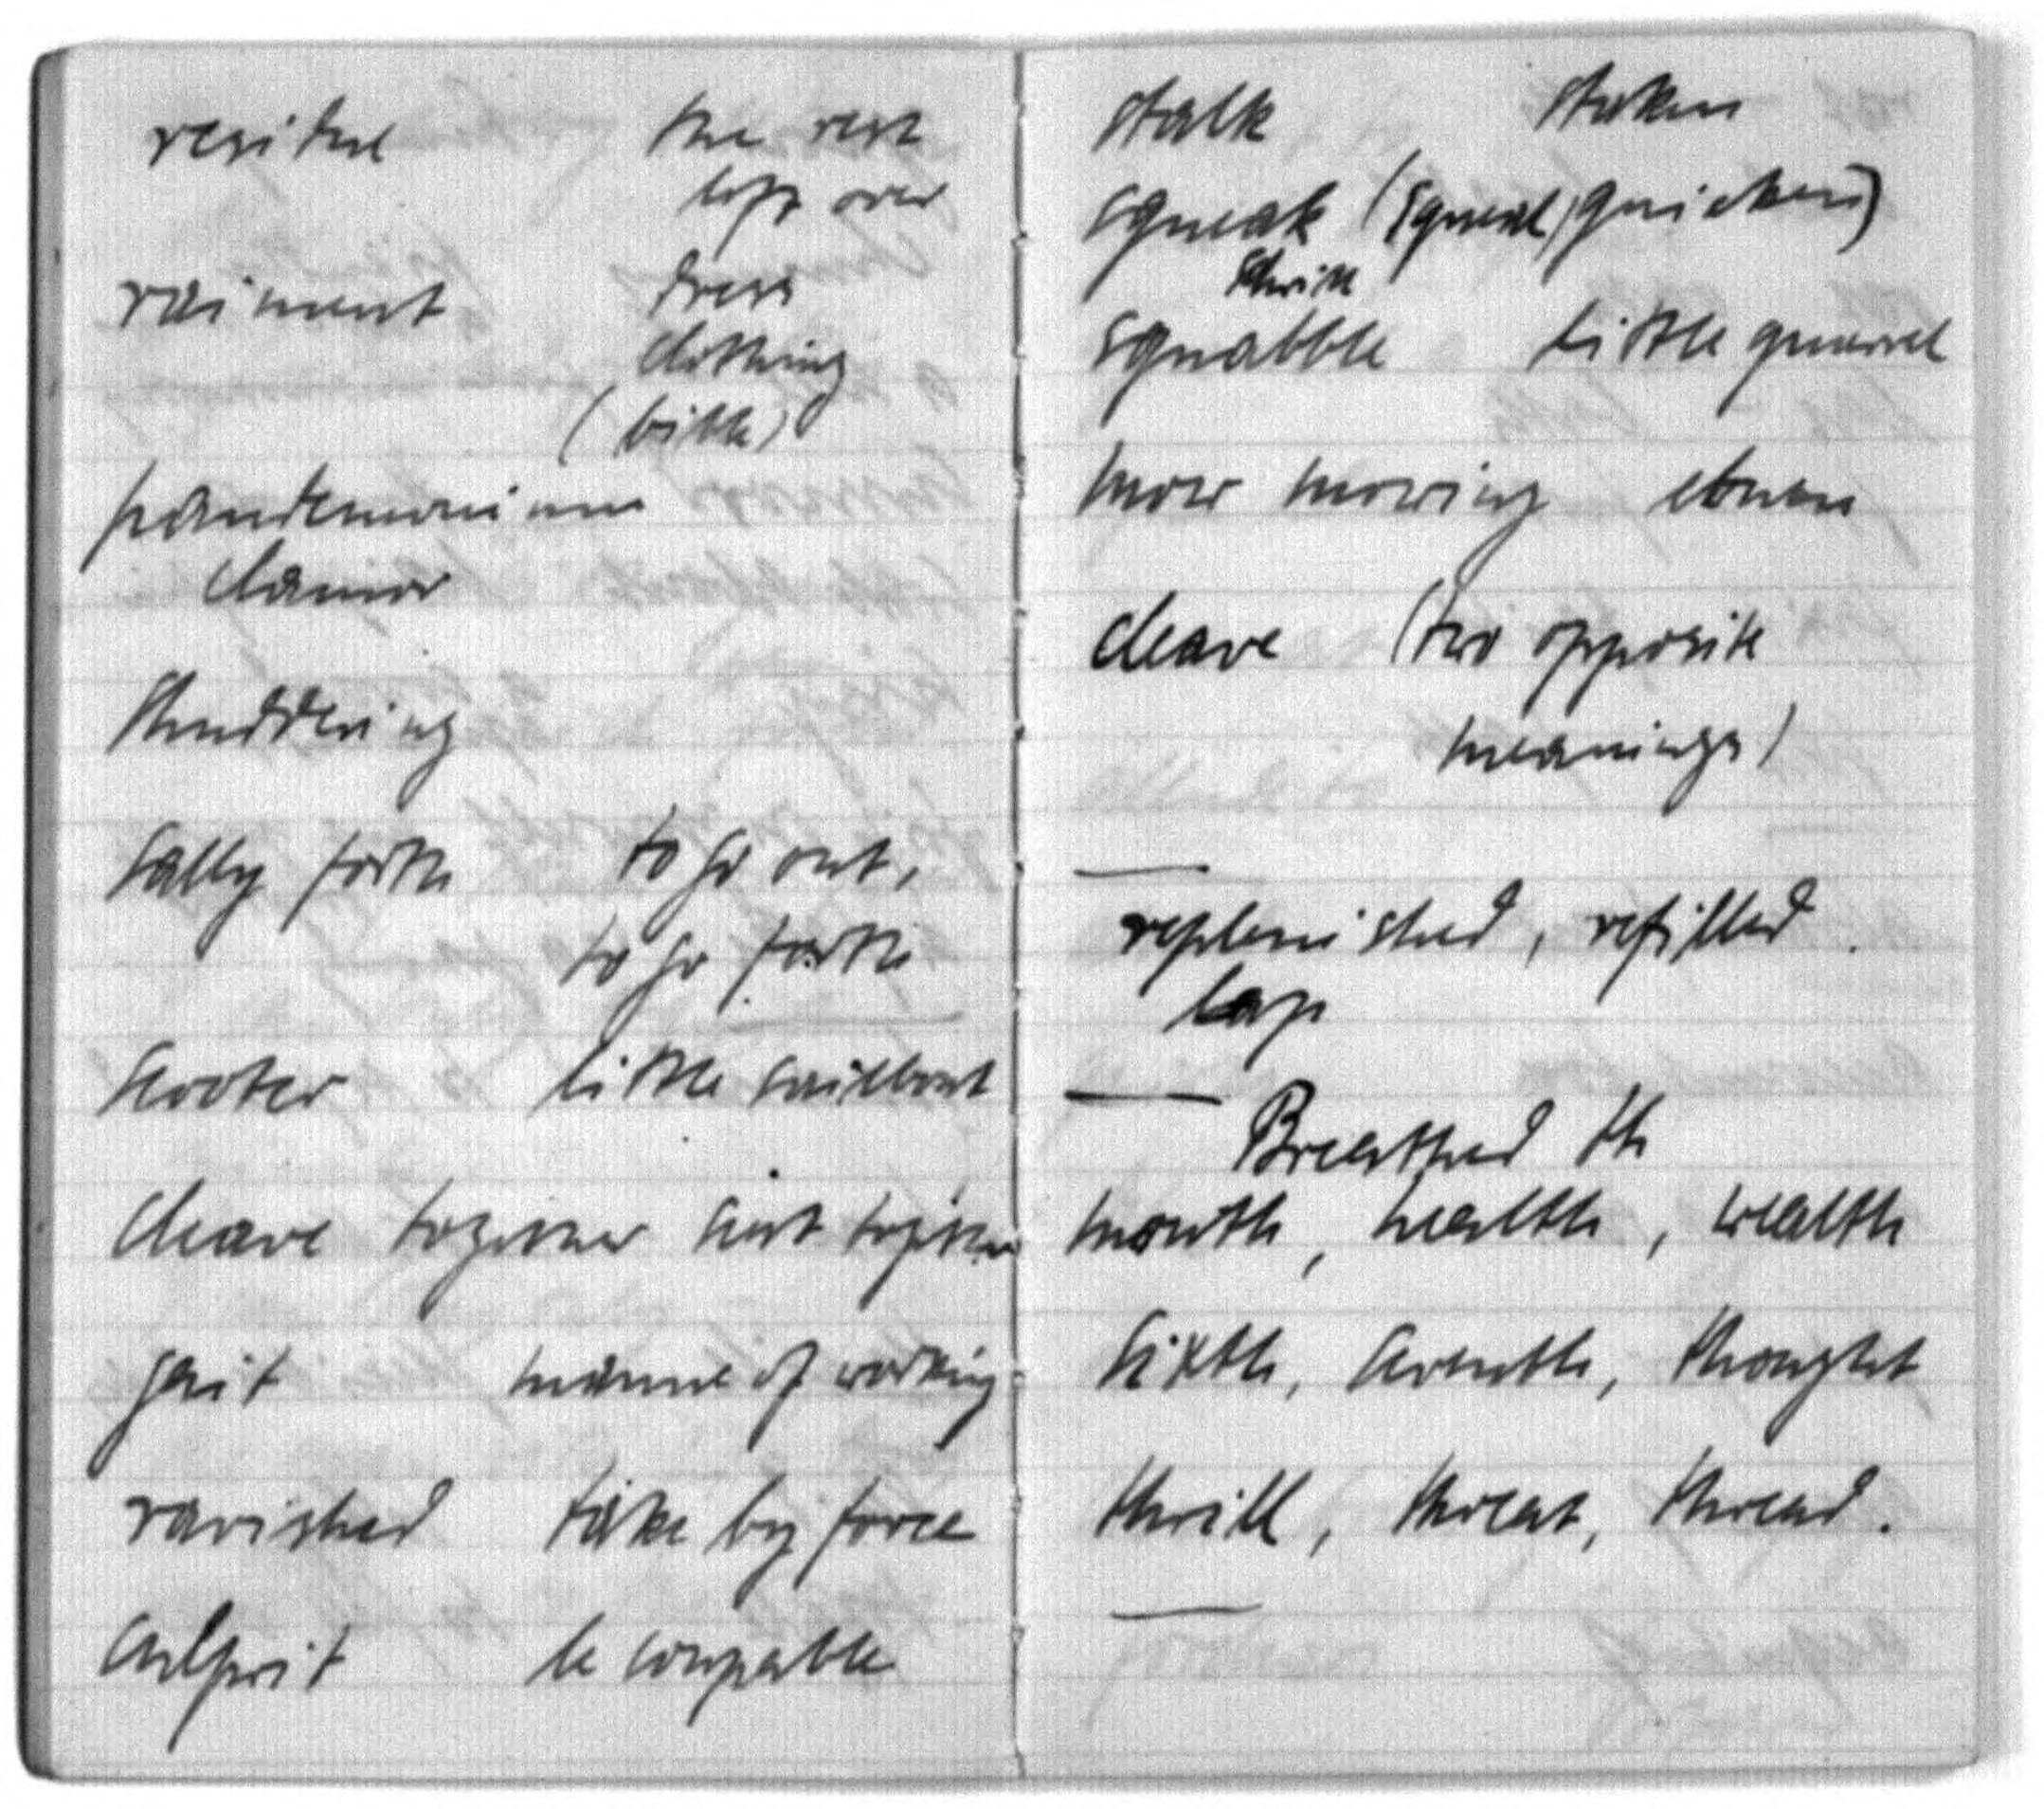 residue the rest
left over
raiment dress
clothing
(bible)
pandemonium
clamor
shuddering
sally forth to go out,
to go forth
scooter little sailboat
cleave together
gait manner of walking
ravished take by force
culprit le coupable
stalk
squeak (squeal, quieken)
shrill
squabble little quarrel
mow mowing
cleave (two opposite
meanings)
replenished, refilled.
lap
Breathed th
month, health, wealth
sixth, seventh, thought
thrill, threat, thread.